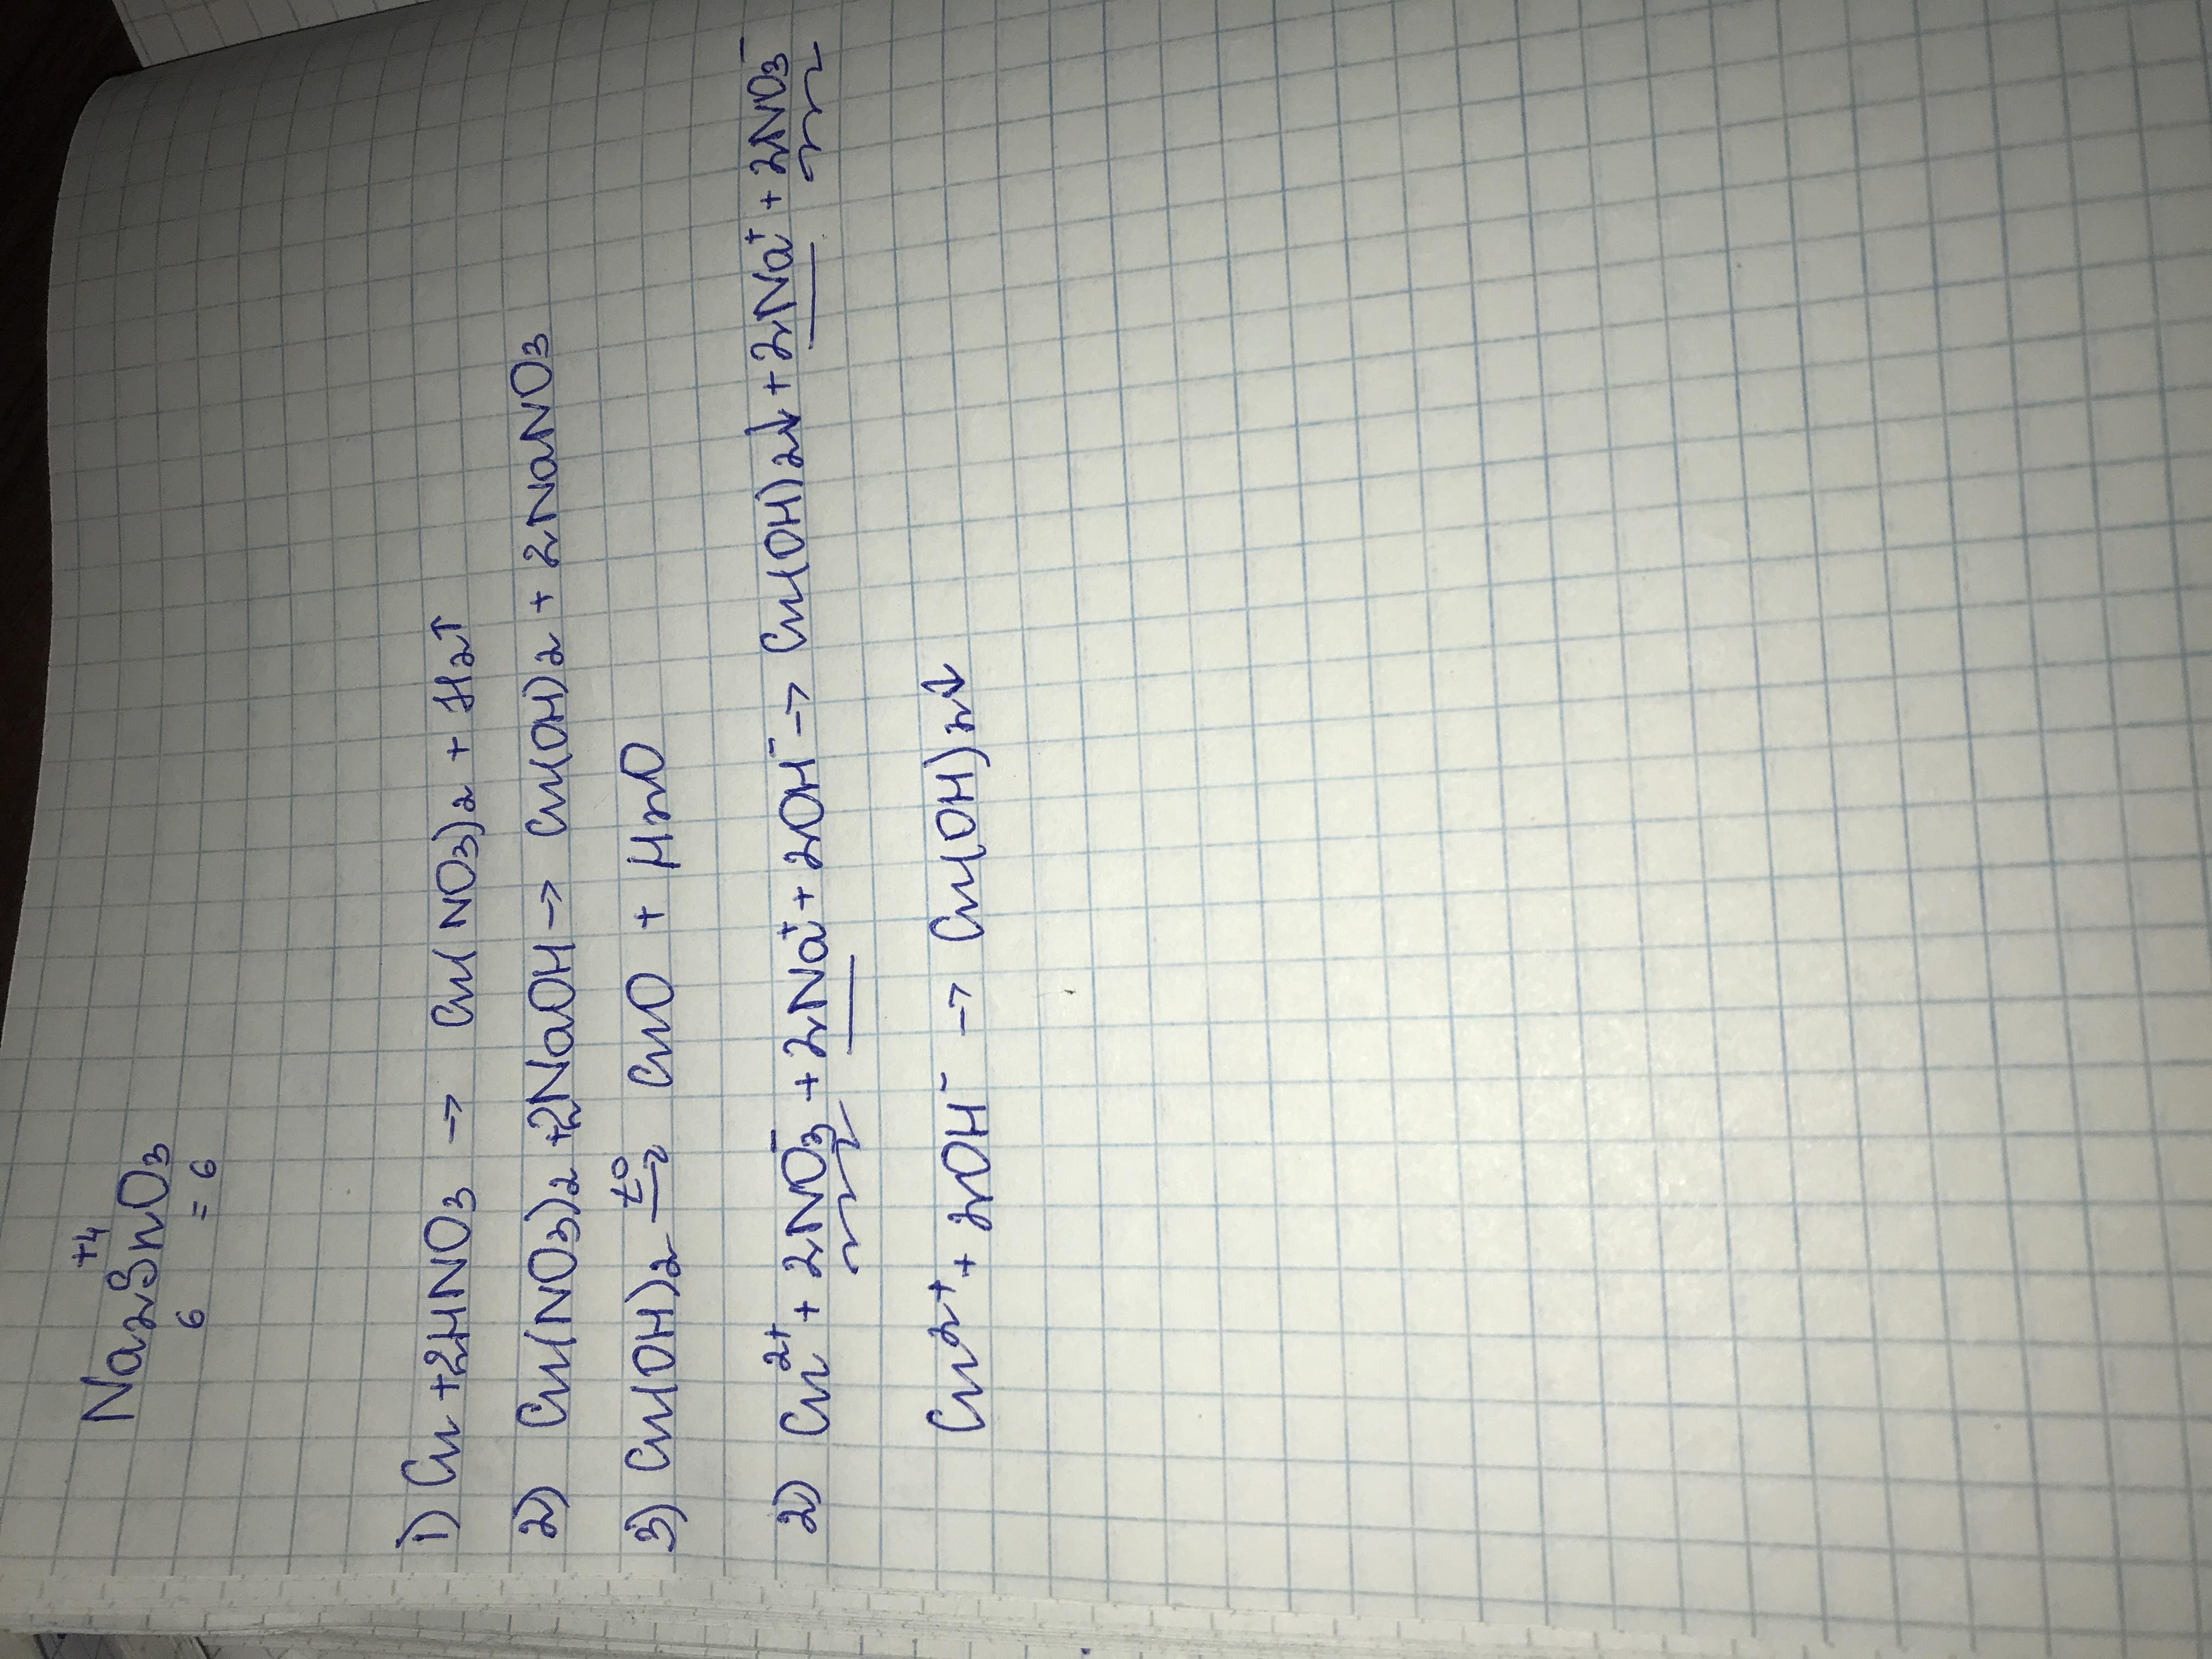 +4
Na2SnO3
6 = 6
1) Cu + 2HNO3 → Cu(NO3)2 + H2↑
2) Cu(NO3)2 + 2NaOH → Cu(OH)2 + 2NaNO3
3) Cu(OH)2 t° → CuO + H2O
2) Cu²⁺ + 2NO3⁻ + 2Na⁺ + 2OH⁻ → Cu(OH)2↓ + 2Na⁺ + 2NO3⁻
Cu²⁺ + 2OH⁻ → Cu(OH)2↓